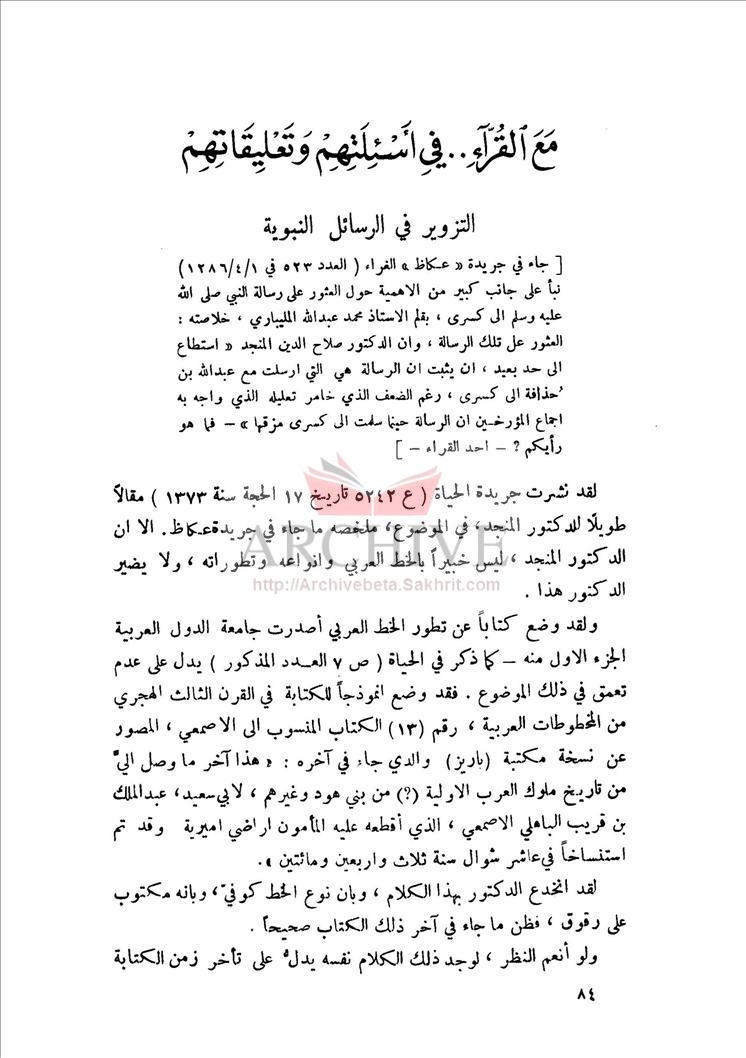 مَعَ ٱلقُرَّآءِ.. فِي أَسْئِلَتِهِمْ وَتَعْلِيقَاتِهِمْ
التزوير في الرسائل النبوية
[ جاء في جريدة « عكاظ » الغراء ( العدد ٥٢٣ في ١٢٨٦/٤/١)
نبأ على جانب كبير من الاهمية حول العثور على رسالة النبي صلى الله
عليه وسلم الى كسرى ، بقلم الاستاذ محمد عبدالله المليباري ، خلاصته :
العثور عل تلك الرسالة ، وان الدكتور صلاح الدين المنجد « استطاع
الى حد بعيد ، ان يثبت ان الرسالة هي التي ارسلت مع عبدالله بن
حُذافة الى كسرى ، رغم الضعف الذي خامر تعليله الذي واجه به
اجماع المؤرخين ان الرسالة حينما سلمت الى كسرى مزقها » – فما هو
رأيكم ? – احد القراء – ]
لقد نشرت جريدة الحياة ( ع ٥٢٤٢ تاريخ ١٧ الحجة سنة ١٣٧٣ ) مقالاً
طويلاً للدكتور المنجد، في الموضوع، ملخصه ما جاء في جريدة عكاظ . الا ان
الدكتور المنجد ، ليس خبيراً بالخط العربي وانواعه وتطوراته ، ولا يضير
الدكتور هذا .
ARCHIVE
http://Archivebeta.Sakhrit.com
ولقد وضع كتاباً عن تطور الخط العربي أصدرت جامعة الدول العربية
الجزء الاول منه – كما ذكر في الحياة ( ص ٧ العدد المذكور ) يدل على عدم
تعمق في ذلك الموضوع . فقد وضع انموذجاً للكتابة في القرن الثالث الهجري
من المخطوطات العربية ، رقم (١٣) الكتاب المنسوب الى الاصمعي ، المصور
عن نسخة مكتبة (باريز) والدي جاء في آخره : « هذا آخر ما وصل اليّ
من تاريخ ملوك العرب الاولية (?) من بني هود وغيرهم ، لابي سعيد، عبدالملك
بن قريب الباهلي الاصمعي ، الذي أقطعه عليه المأمون اراضي اميرية وقد تم
استنساخاً في عاشر شوال سنة ثلاث واربعين ومائتين » .
لقد انخدع الدكتور بهذا الكلام ، وبان نوع الخط كوفيّ، وبانه مكتوب
على رقوق ، فظن ما جاء في آخر ذلك الكتاب صحيحاً .
ولو أنعم النظر ، لوجد ذلك الكلام نفسه يدلُّ على تأخر زمن الكتابة
٨٤